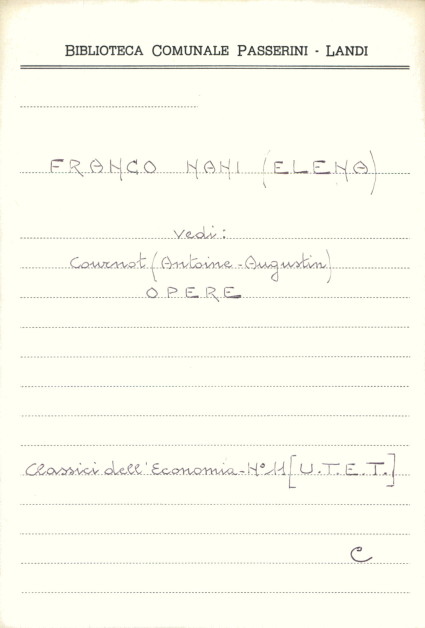 BIBLIOTECA COMUNALE PASSERINI - LANDI
FRANCO NANI (ELENA)
vedi:
Cournot (Antoine-Augustin)
OPERE
Classici dell'Economia - N° 11 [U.T.E.T.]
C